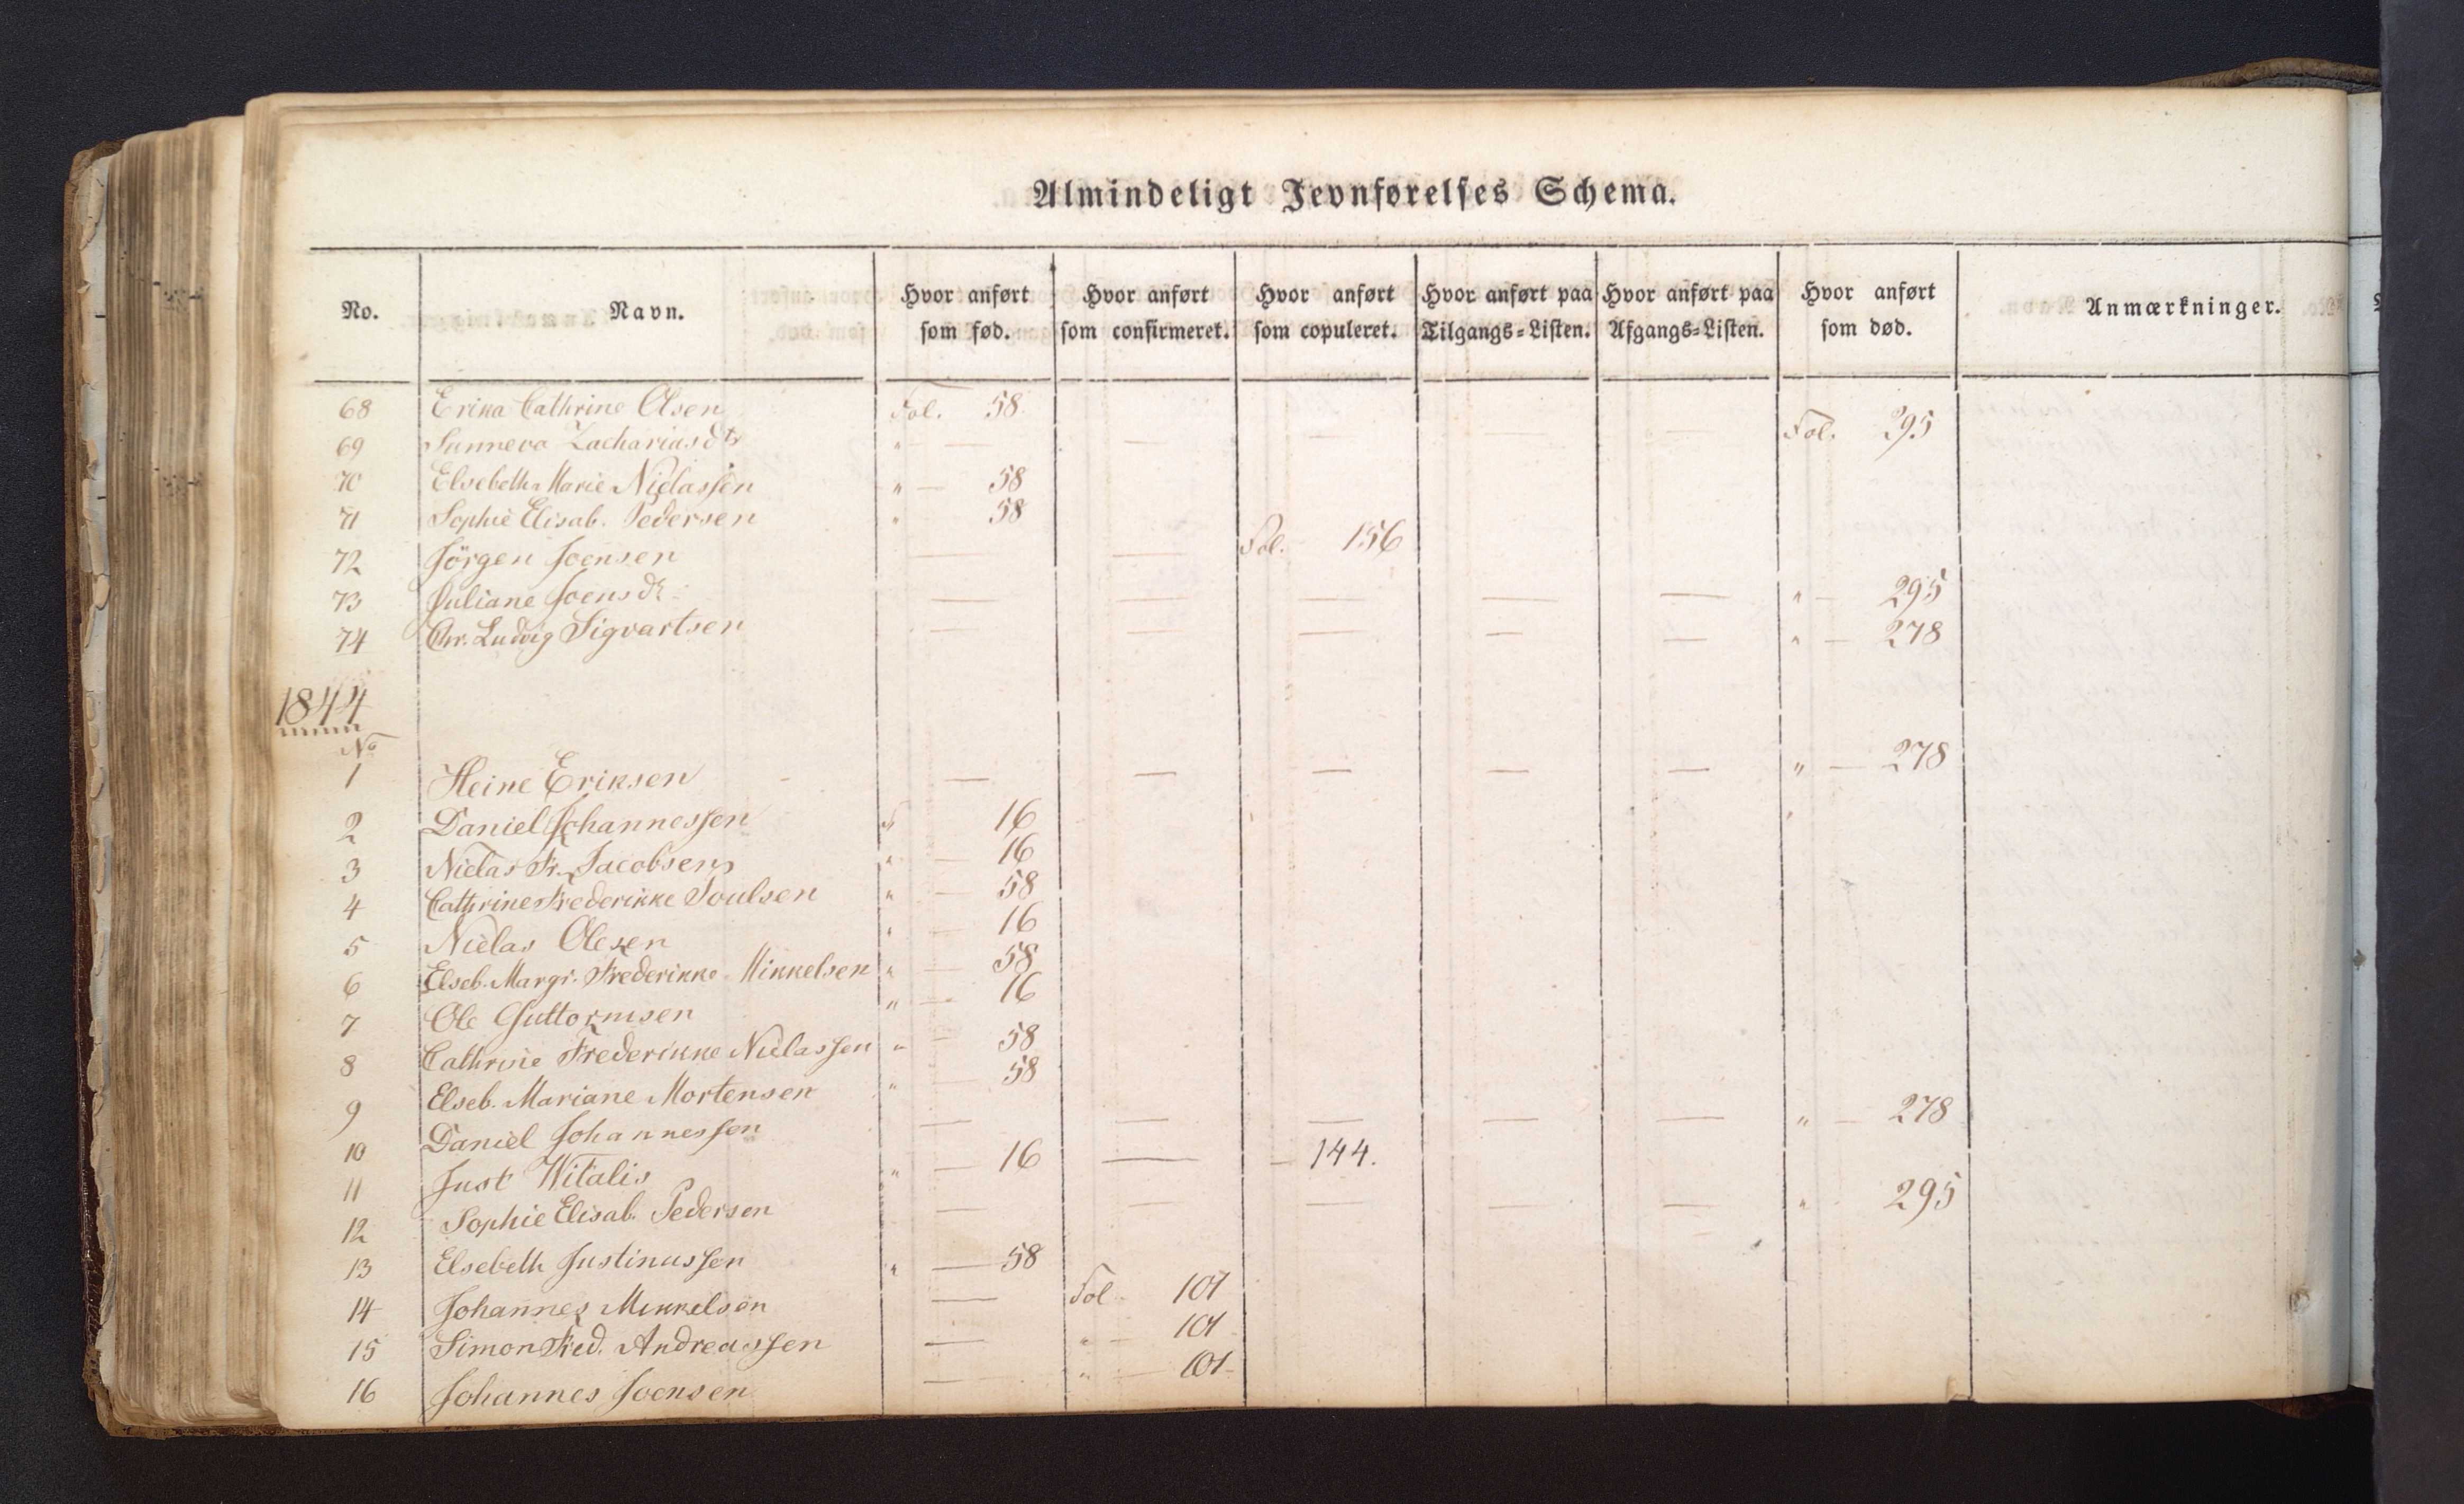 Almindeligt Jevnførelses Schema.
No. Navn. Hvor anført som fød. Hvor anført som confirmeret. Hvor anført som copuleret. Hvor anført paa Tilgangs=Listen. Hvor anført paa Afgangs=Listen. Hvor anført som død. Anmærkninger.
68 Erika Cathrine Olsen Fol. 58
69 Sunneva Zachariasdtr " — — — — — Fol. 295
70 Elsebeth Marie Niclassen " — 58
71 Sophie Elisab. Pedersen " 58
72 Jörgen Joensen — — Fol. 156
73 Juliane Joensdr. — — — — — " — 295
74 Chr. Ludvig Sigvartsen — — — — — " — 278
1844
No
1 Heine Eriksen — — — — — " — 278
2 Daniel Johannessen " 16
3 Niclas Fr. Jacobsen " — 16
4 Cathrine Frederikke Poulsen " — 58
5 Niclas Olesen " — 16
6 Elseb. Margr. Frederikke Mikkelsen " — 58
7 Ole Guttormsen " — 16
8 Cathrine Frederikke Niclassen " — 58
9 Elseb. Mariane Mortensen " — 58
10 Daniel Johannessen — — — — — " — 278
11 Just Witalis " — 16 — — 144.
12 Sophie Elisab. Pedersen — — — — — " 295
13 Elsebeth Justinussen " — 58
14 Johannes Mikkelsen — Fol. 101
15 Simon Fred. Andreassen — " — 101
16 Johannes Joensen — " — 101